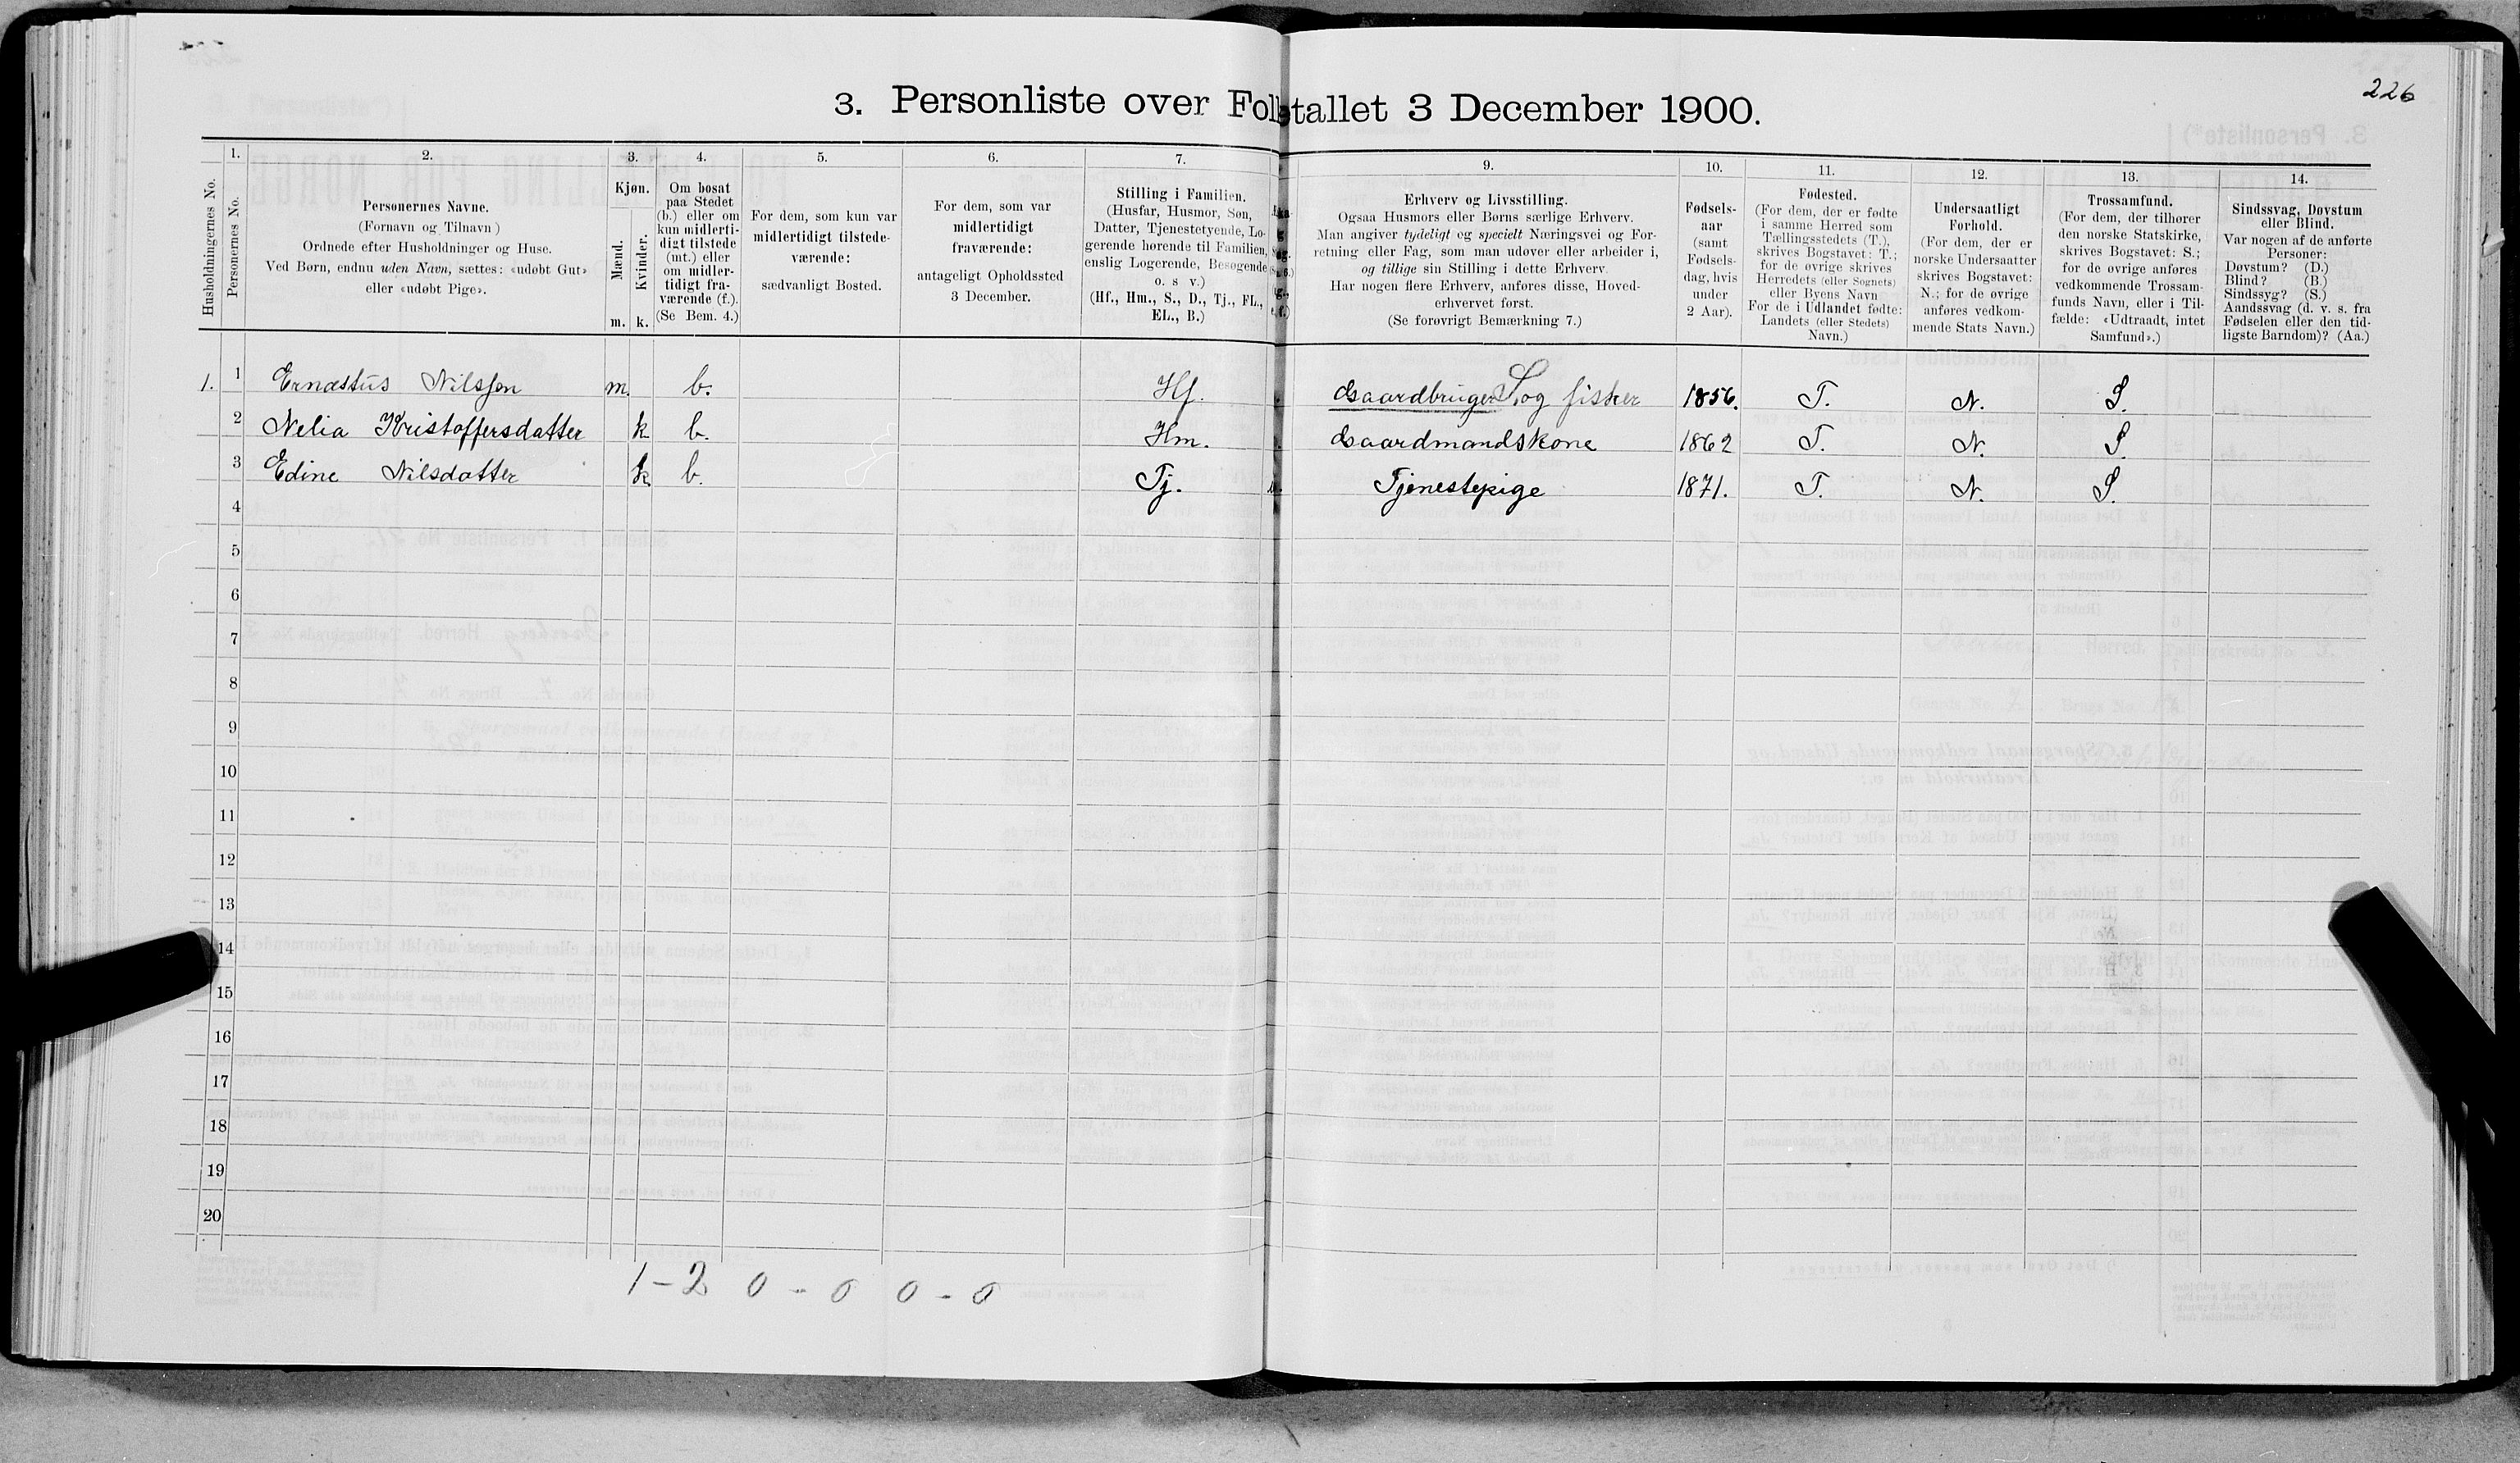 226
3. Personliste over Folketallet 3 December 1900.
1. 2. 3. 4. 5. 6. 7. 9. 10. 11. 12. 13. 14.
Husholdningernes No.
Personernes No.
Personernes Navne.
(Fornavn og Tilnavn)
Ordnede efter Husholdninger og Huse.
Ved Børn, endnu uden Navn, sættes: «udøbt Gut»
eller «udøbt Pige».
Kjøn.
Mænd.
Kvinder.
m. k.
Om bosat
paa Stedet
(b.) eller om
kun midlerti-
digt tilstede
(mt.) eller
om midler-
tidigt fra-
værende (f.).
(Se Bem. 4.)
For dem, som kun var
midlertidigt tilstede-
værende:
sædvanligt Bosted.
For dem, som var
midlertidigt
fraværende:
antageligt Opholdssted
3 December.
Stilling i Familien.
(Husfar, Husmor, Søn,
Datter, Tjenestetyende, Lo-
gerende hørende til Familien,
enslig Logerende, Besøgende
o. s v.)
(Hf., Hm., S., D., Tj., FL.,
EL., B.)
Erhverv og Livsstilling.
Ogsaa Husmors eller Børns særlige Erhverv.
Man angiver tydeligt og specielt Næringsvei og For-
retning eller Fag, som man udøver eller arbeider i,
og tillige sin Stilling i dette Erhverv.
Har nogen flere Erhverv, anføres disse, Hoved-
erhvervet først.
(Se forøvrigt Bemærkning 7.)
Fødsels-
aar
(samt
Fødsels-
dag, hvis
under
2 Aar).
Fødested.
(For dem, der er fødte
i samme Herred som
Tællingsstedets (T.),
skrives Bogstavet: T.;
for de øvrige skrives
Herredets (eller Sognets)
eller Byens Navn
For de i Udlandet fødte:
Landets (eller Stedets)
Navn.)
Undersaatligt
Forhold.
(For dem, der er
norske Undersaatter
skrives Bogstavet:
N.; for de øvrige
anføres vedkom-
mende Stats Navn.)
Trossamfund.
(For dem, der tilhører
den norske Statskirke,
skrives Bogstavet: S.;
for de øvrige anføres
vedkommende Trossam-
funds Navn, eller i Til-
fælde: «Udtraadt, intet
Samfund».)
Sindssvag, Døvstum
eller Blind.
Var nogen af de anførte
Personer:
Døvstum? (D.)
Blind? (B.)
Sindssyg? (S.)
Aandssvag (d. v. s. fra
Fødselen eller den tid-
ligste Barndom)? (Aa.)
1. 1 Ernæstus Nilssen m. b. Hf. Gaardbruger S. og fisker 1856. T. N. S.
2 Nelia Kristoffersdatter k b. Hm. Gaardmandskone 1862 T. N. S.
3 Edine Nilsdatter k b. Tj. Tjenestepige 1871. T. N. S.
4
5
6
7
8
9
10
11
12
13
14
15
16
17
18
19
20
1 - 2 0 - 0 0 - 0